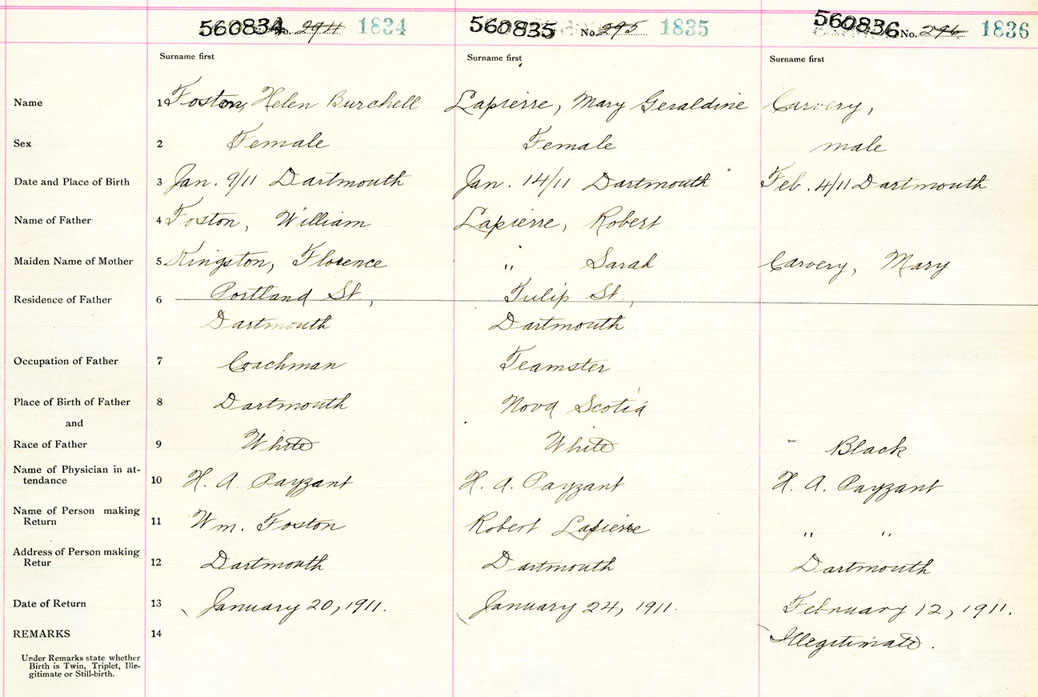 560834 No. 294 1834 560835 No. 295 1835 560836 No. 296 1836
Surname first Surname first Surname first
Name 1 Foston, Helen Burchell Lapierre, Mary Geraldine Carvery,
Sex 2 Female Female male
Date and Place of Birth 3 Jan. 9/11 Dartmouth Jan. 14/11 Dartmouth Feb. 4/11 Dartmouth
Name of Father 4 Foston, William Lapierre, Robert
Maiden Name of Mother 5 Kingston, Florence " Sarah Carvery, Mary
Residence of Father 6 Portland St, Tulip St,
Dartmouth Dartmouth
Occupation of Father 7 Coachman Teamster
Place of Birth of Father 8 Dartmouth Nova Scotia
and
Race of Father 9 White White Black
Name of Physician in at-
tendance 10 H. A. Payzant H. A. Payzant H. A. Payzant
Name of Person making
Return 11 Wm. Foston Robert Lapierre " "
Address of Person making
Retur 12 Dartmouth Dartmouth Dartmouth
Date of Return 13 January 20, 1911. January 24, 1911. February 12, 1911.
REMARKS 14 Illegitimate.
Under Remarks state whether
Birth is Twin, Triplet, Ille-
gitimate or Still-birth.